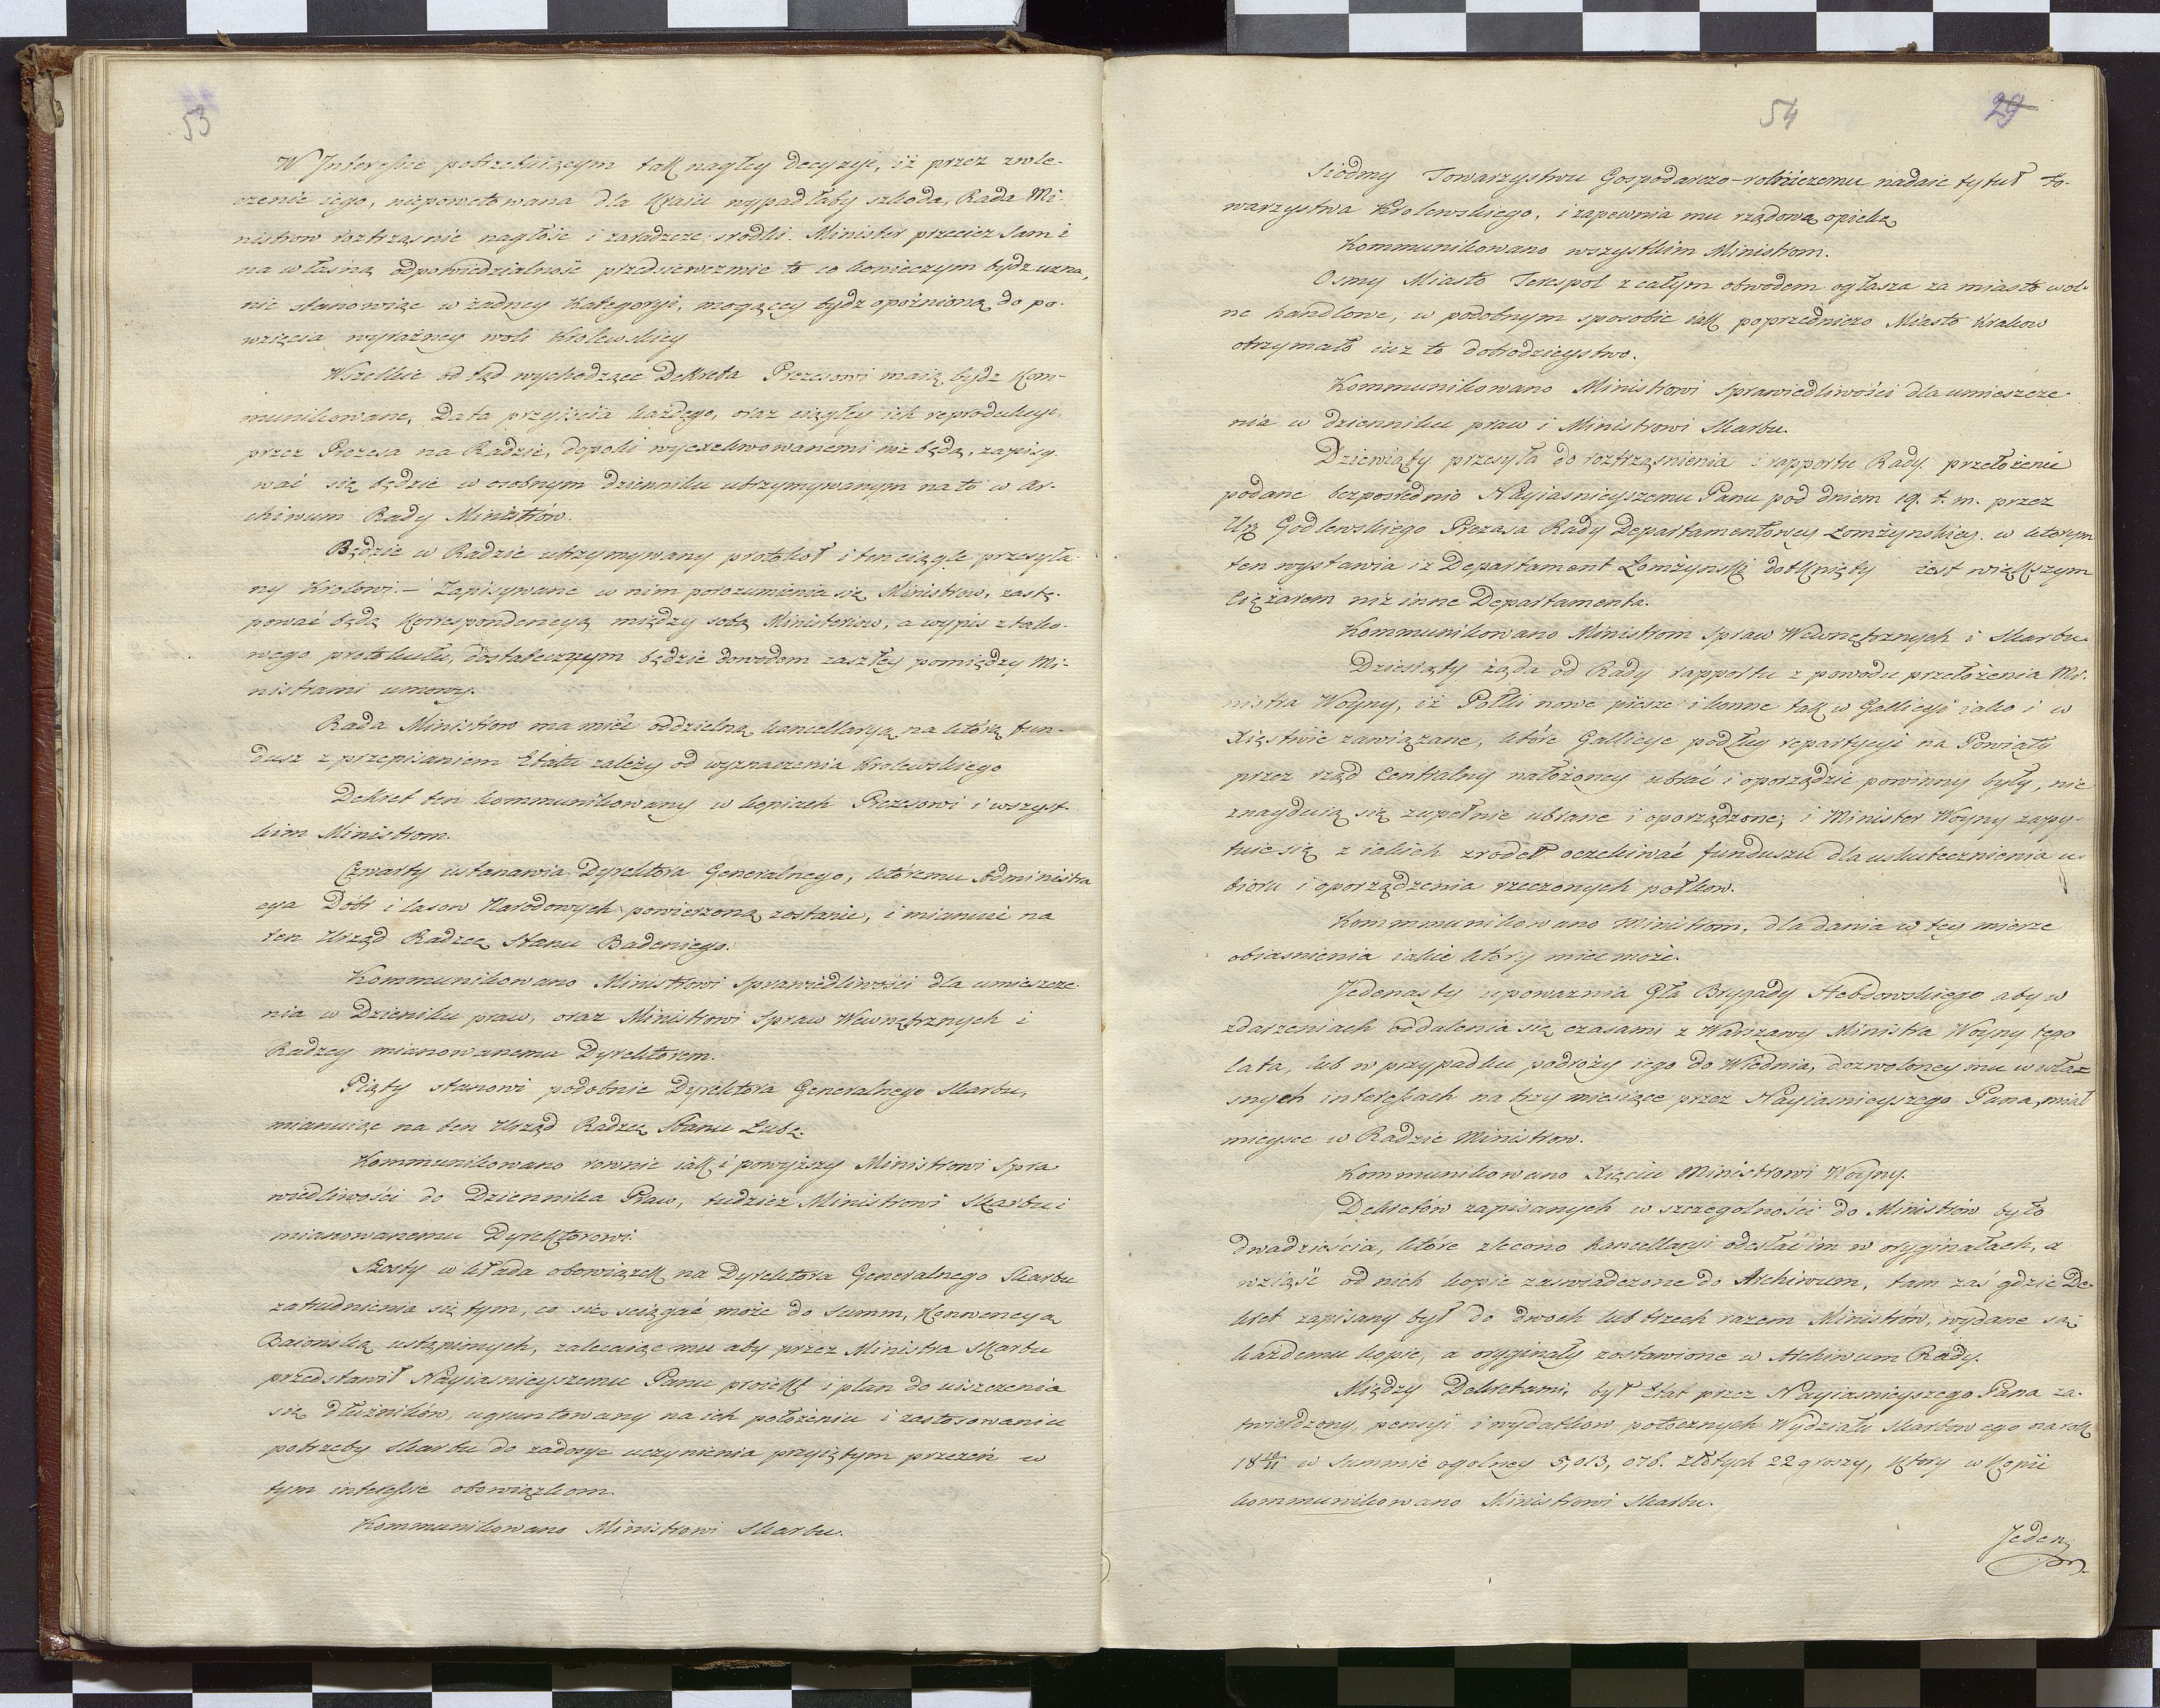 53
W Interessie potrzebuiącym tak nagłey decyzyi, iż przez zwle-
czenie iego, niepowetowana dla Kraiu wypadłaby szkoda, Rada Mi-
nistrow roztrząsnie nagłość i zaradcze srodki. Minister przeciez sam i
na własną odpowiedzialność przedsiewezmie to co koniecznym bydz uzna,
nic stanowiąc w żadney Kategoryi, mogącey bydz opoźnioną do po-
wzięcia wyraźney woli Krolewskiey
Wszelkie od tąd wychodzące Dekreta Prezesowi maią bydz Kom-
munikowane, Data przyiścia każdego, oraz ciągłey ich reprodukcyi,
przez Prezesa na Radzie, dopoki wyexekwowanemi nie będą, zapisy-
wać się będzie w osobnym dzienniku utrzymywanym na to w Ar-
chiwum Rady Ministrów.
Będzie w Radzie utrzymywany protokoł i ten ciągle przesyła-
ny Krolowi. – Zapisywane w nim porozumienia się Ministrow, zastę-
pować będą Korrespondencyą między sobą Ministeriow, a wypis z tako-
wego protokułu, dostatecznym będzie dowodem zaszłey pomiędzy Mi-
nistrami umowy.
Rada Ministrow ma mieć oddzielną kancellaryą na którą fun-
dusz z przepisaniem Etatu zależy od wyznaczenia Krolewskiego
Dekret ten kommunikowany w kopiach Prezesowi i wszyst-
kim Ministrom.
Czwarty ustanawia Dyrektora Generalnego, któremu Administra
cya Dobr i lasow Narodowych powierzoną zostanie, i mianuie na
ten Urząd Radzcę Stanu Badeniego.
Kommunikowano Ministrowi Sprawiedliwości dla umieszcze-
nia w Dzieniku praw, oraz Ministrowi Spraw Wewnętrznych i
Radzcy mianowanemu Dyrektorem.
Piąty stanowi podobnie Dyrektora Generalnego Skarbu,
mianuiąc na ten Urząd Radzcę Stanu Łubę.
Kommunikowano rownie iak i powyższy Ministrowi Spra
wiedliwości do Dziennika Praw, tudzież Ministrowi Skarbu i
mianowanemu Dyrektorowi.
Szosty wkłada obowiązek na Dyrektora Generalnego Skarbu
zatrudnienia się tym, co się sciągać może do Summ, Konwencyą
Baionską ustąpionych, zalecaiąc mu aby przez Ministra Skarbu
przedstawił Nayiasnieyszemu Panu proiekt i plan do uiszczenia
się dłużników, ugruntowany na ich położeniu i zastosowaniu
potrzeby Skarbu do zadosyc uczynienia przyiętym przezeń w
tym interessie obowiązkom.
Kommunikowano Ministrowi Skarbu.
54 29
Siodmy Towarzystwu Gospodarczo-rolniczemu nadaie tytuł to-
warzystwa Krolewskiego, i zapewnia mu rządową opiekę
Kommunikowano wszystkim Ministrom.
Osmy Miasto Terespol z całym obwodem ogłasza za miasto wol-
ne handlowe, w podobnym sposobie iak poprzedniczo Miasto Krakow
otrzymało iuż to dobrodzieystwo.
Kommunikowano Ministrowi Sprawiedliwości dla umieszcze-
nia w dzienniku praw i Ministrowi Skarbu.
Dziewiąty przesyła do roztrząsnienia i rapportu Rady przełożenie
podane bezpośrednio Nayiasnieyszemu Panu pod dniem 19. t. m. przez
Ur. Godlewskiego Prezesa Rady Departamentowey Łomżynskiey. w ktorym
ten wystawia iż Departament Łomżynski dotknięty iest większym
Ciężarem niż inne Departamenta.
Kommunikowano Ministrom Spraw Wewnętrznych i Skarbu
Dziesiąty żąda od Rady rapportu z powodu przełożenia Mi-
nistra Woyny, iż Półki nowe piesze i konne tak w Gallicyi iako i w
Xięstwie zawiązane, które Gallicye podług repartycyi na Powiaty
przez rząd Centralny nałożoney ubrać i oporządzić powinny były, nie
znayduią się zupełnie ubrane i oporządzone; i Minister Woyny zapy-
tuie się z iakich zrodeł oczekiwać funduszu dla uskutecznienia u-
bioru i oporządzenia rzeczonych połkow.
Kommunikowano Ministrom, dla dania w tey mierze
obiasnienia iakie który miec może.
Jedenasty upoważnia Gła Brygady Hebdowskiego aby w
zdarzeniach oddalenia się czasami z Warszawy Ministra Woyny tego
lata, lub w przypadku podroży iego do Wiednia, dozwoloney mu w włas-
snych interessach na trzy miesiące przez Nayiasnieyszego Pana, miał
mieysce w Radzie Ministrow.
Kommunikowano Xięciu Ministrowi Woyny.
Dekretów zapisanych w szczegolności do Ministrów było
dwadzieścia, które zlecono Kancellaryi odesłać im w oryginałach, a
wziąść od nich kopie zaswiadczone do Archiwum, tam zaś gdzie De-
kret zapisany był do dwoch lub trzech razem Ministrów, wydane są
każdemu kopie, a oryginały zostawione w Archiwum Rady.
Między Dekretami, był Etat przez Nayiasnieyszego Pana za-
twierdzony, pensyi i wydatkow potocznych Wydziału Skarbowego na rok
18 10/11 w Summie ogolney 5,013,076. złłtych 22 groszy, ktory w Kopii
kommunikowano Ministrowi Skarbu.
Jeden